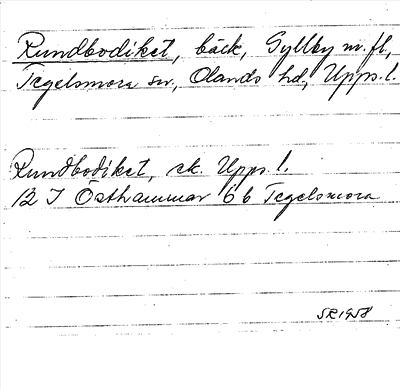 Rundbodiket, bäck, Gyllby m. fl,
Tegelsmora sn, Olands hd, Upps. l.
Rundbodiket, ek. Upps. l.
12 I Östhammar 6 b Tegelsmora
SR 1958